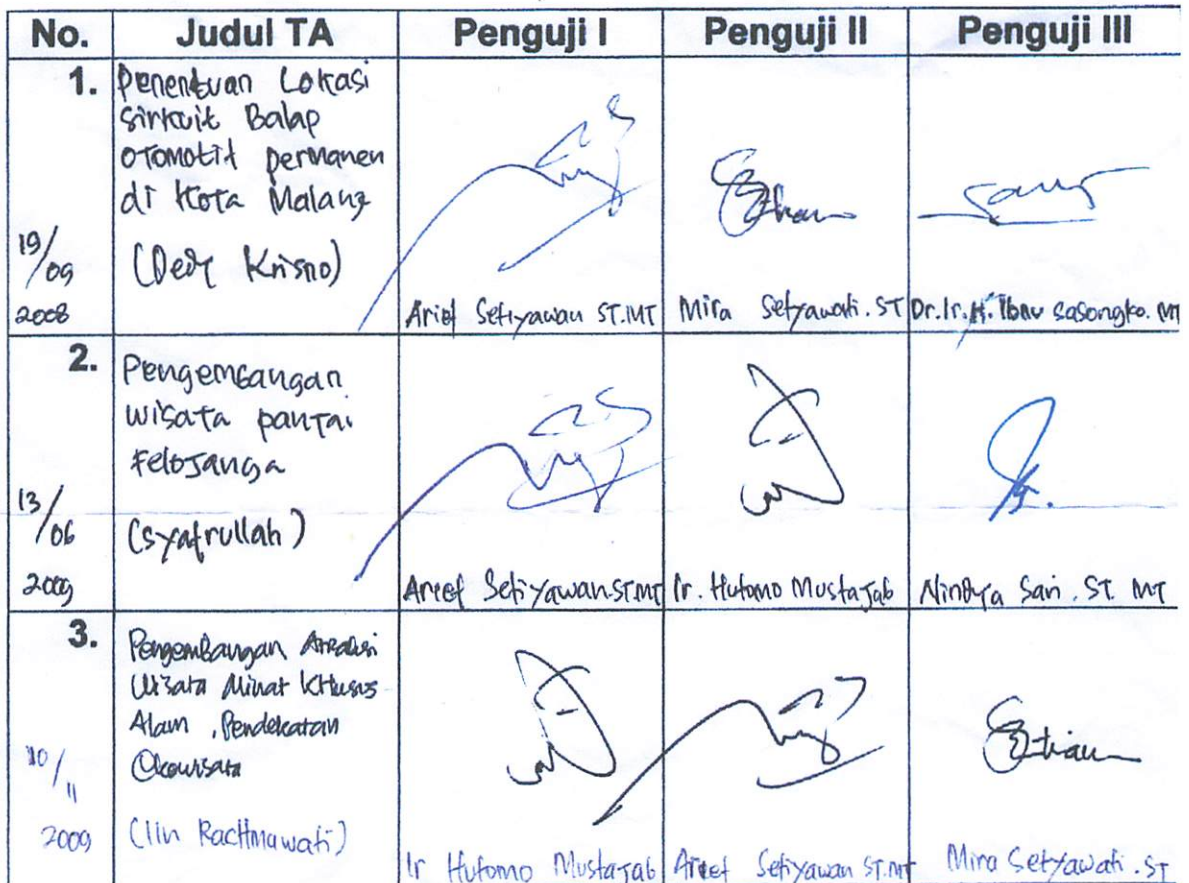 No. Judul TA Penguji I Penguji II Penguji III
1. Penentuan Lokasi
Sirkuit Balap
otomotif permanen
di Kota Malang
(Dedy Krisno)
19/09
2008
Arief Setiyawan ST.MT
Mira Setyawati. ST
Dr.Ir.H. Ibnu Sasongko. MT
2. Pengembangan
wisata pantai
(Syafrullah)
13/06
2009
Arief Setiyawan ST.MT
Ir. Hutomo Mustajab
Nindya Sari. ST. MT
3. Pengembangan Atraksi
Wisata Minat Khusus
Alam, Pendekatan
Ekowisata
10/11
2009
(Iin Rachmawati)
Ir Hutomo Mustajab
Arief Setiyawan ST.MT
Mira Setyawati. ST